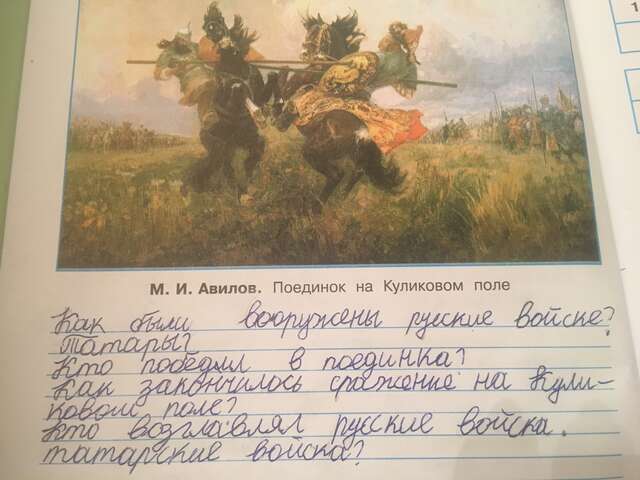 М. И. Авилов. Поединок на Куликовом поле
Как были вооружены руские войске?
Татары?
Кто победил в поединка?
Как закончилось сражение на Кули-
ковом поле?
Кто возглавлял руские войска.
татарские войска?
1